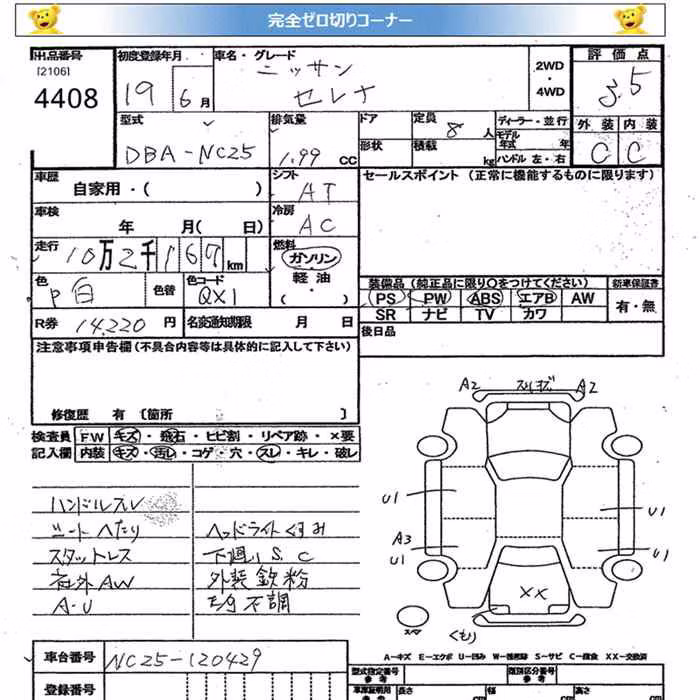 完全ゼロ切りコーナー
出品番号 初度登録年月 車名・グレード 2WD ・ 4WD 評価点
[2106]
4408 19 6月 ニッサン セレナ 3.5
型式 排気量 ドア 定員 8 人 ディーラー・並行 外装 内装
DBA-NC25 1.99 CC 形状 積載 kg モデル年式 年 ハンドル 左・右 C C
車歴 シフト セールスポイント (正常に機能するものに限ります)
自家用・( ) AT
車検 冷房
年 月( 日) AC
走行 10万2千167km 燃料 ガソリン・軽油・( )
色 P白 色替 色コード QX1 装備品 (純正品に限り○をつけてください) 新車保証書
PS PW ABS エアB AW 有・無
R券 14,220 円 名変通知期限 月 日 SR ナビ TV カワ
後日品
注意事項申告欄 (不具合内容等は具体的に記入して下さい)
修復歴 有 [箇所 ]
検査員 FW キズ・飛石・ヒビ割・リペア跡・×要
記入欄 内装 キズ・汚レ・コゲ・穴・スレ・キレ・破レ
ハンドルスレ
シートへたり ヘッドライトくすみ
スタットレス 下廻り S.C
社外AW 外装鉄粉
A-U
不調
A2 A2
U1 U1
A3
U1 U1
XX
スマ
くもり
A-キズ E-エクボ U-凹み W-補修跡 S-サビ C-腐食 XX-交換済
車台番号 NC25-120429
型式指定番号 参考 類別区分番号 参考
登録番号
車庫証明用 参考 長さ cm 幅 cm 高さ cm